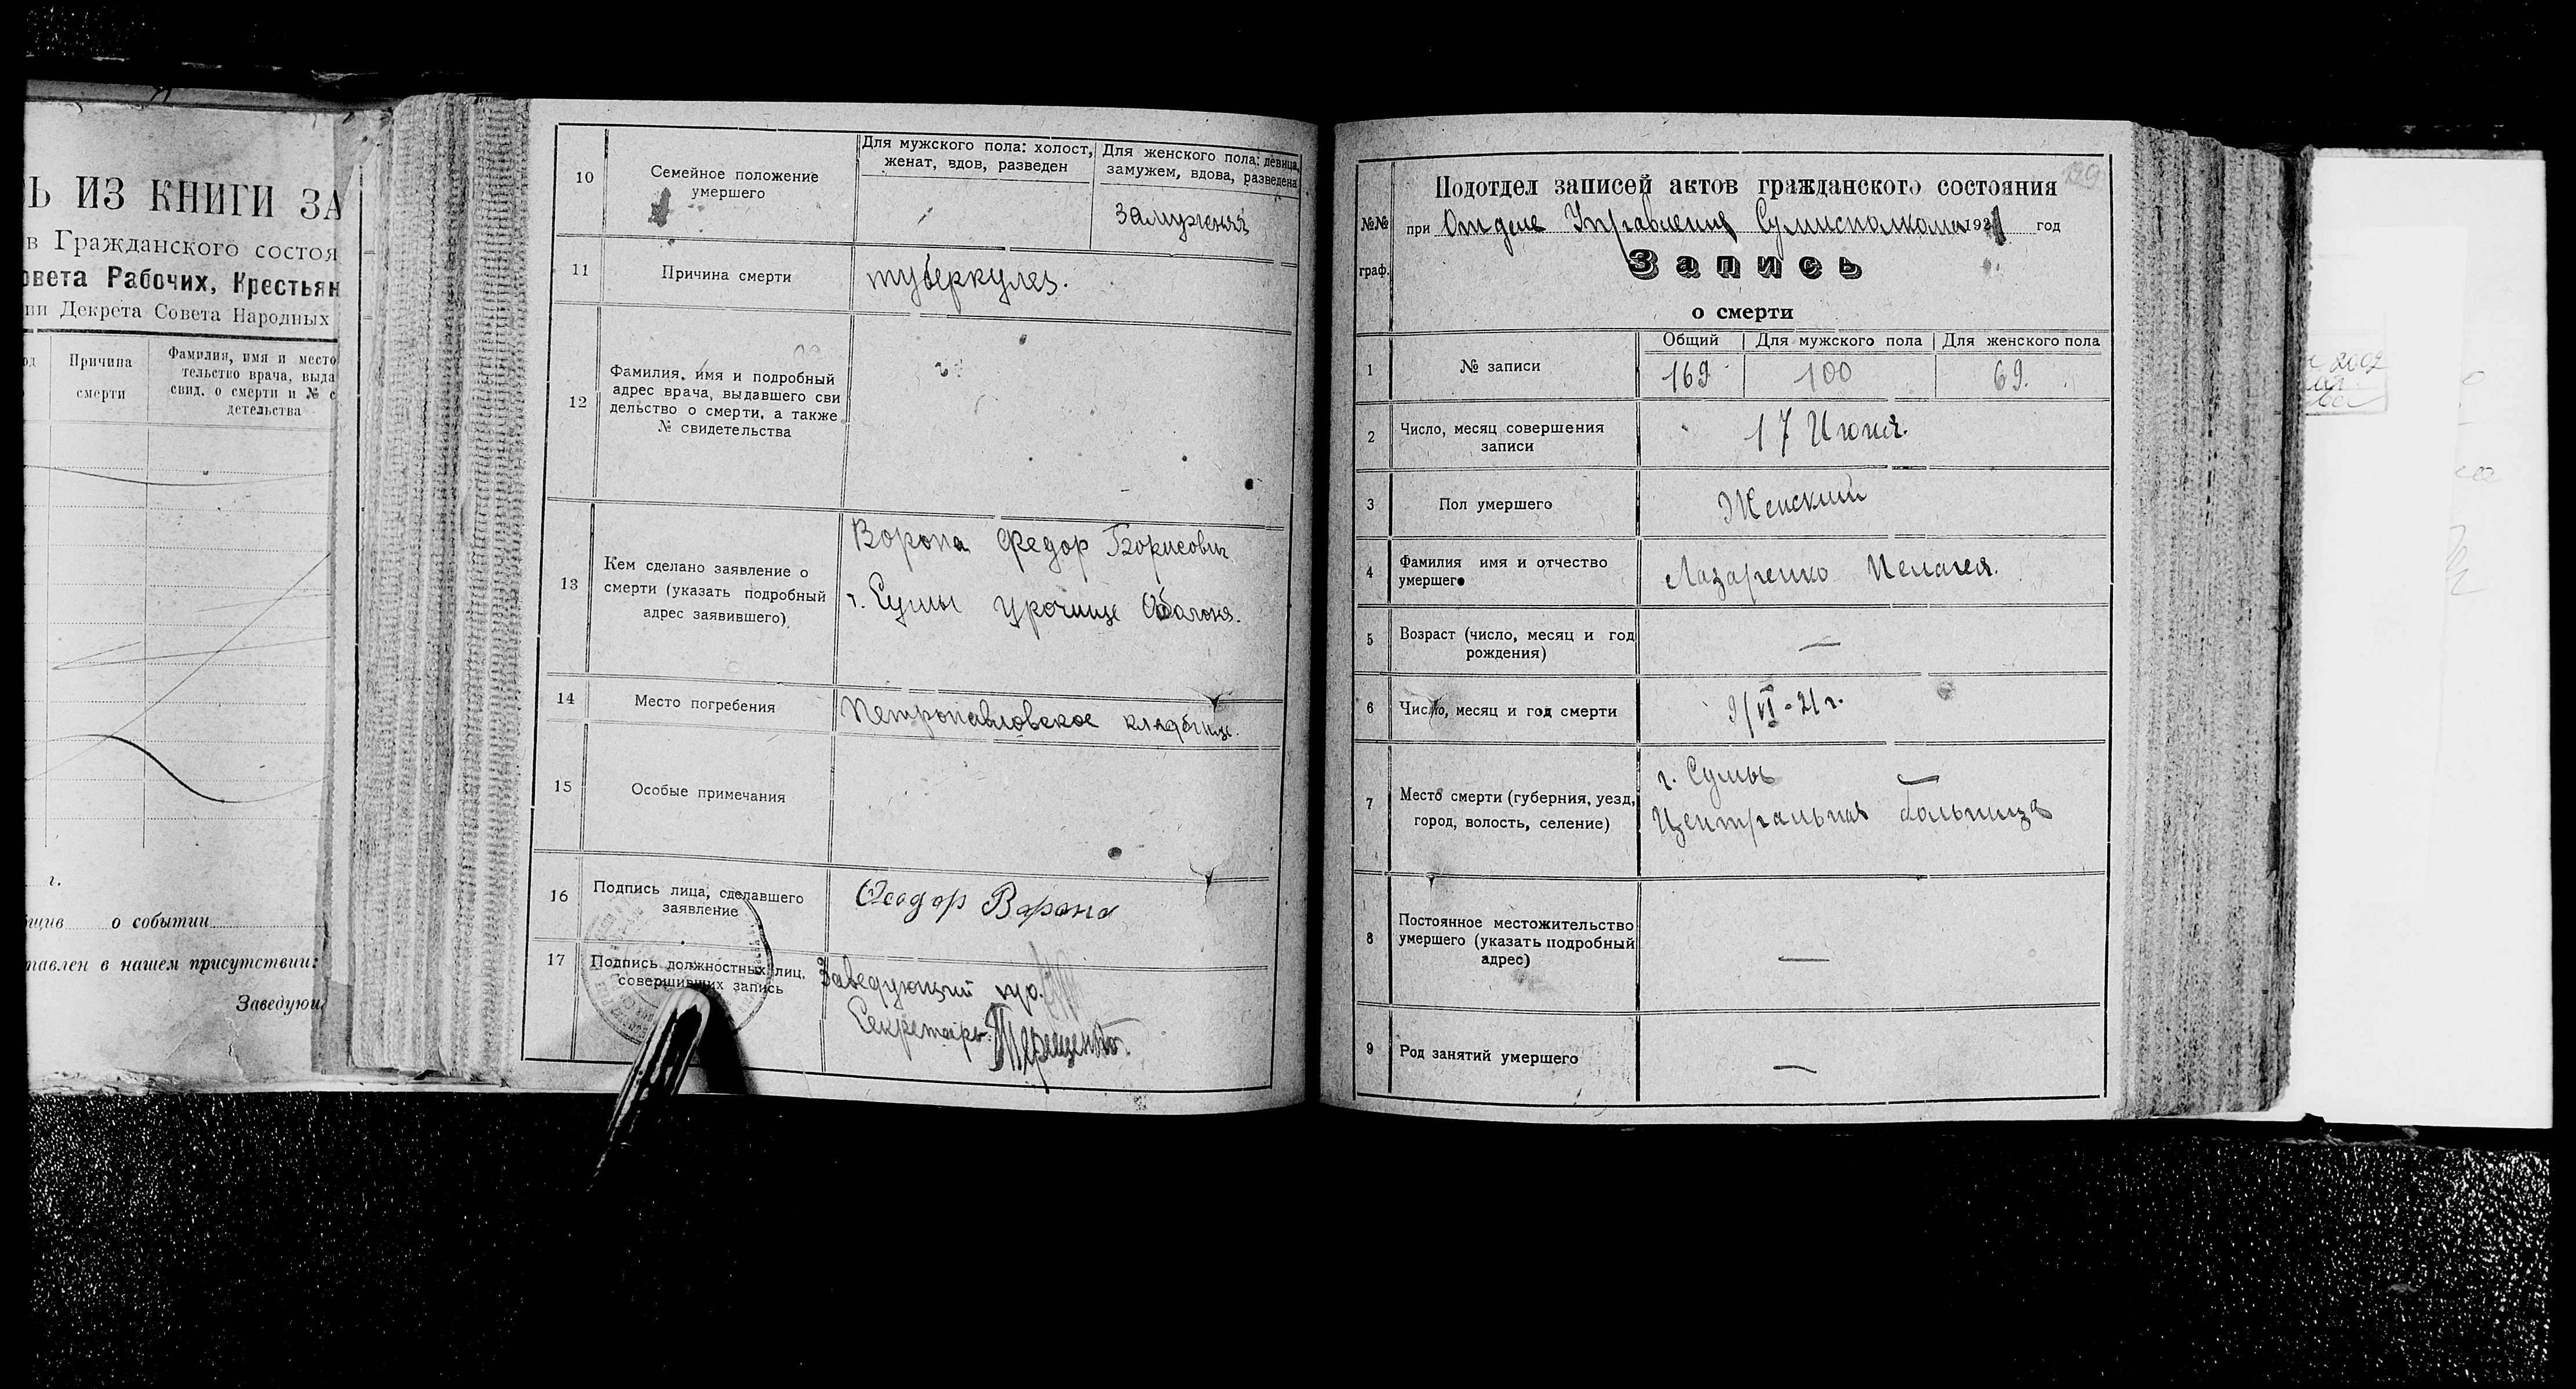 Ь ИЗ КНИГИ ЗА
в Гражданского состоя
овета Рабочих, Крестьян
ии Декрета Совета Народных
од
Причина
смерти
Фамилия, имя и место
тельство врача, выда
свид. о смерти и № с
детельства
г.
бщив о событии
тавлен в нашем присутствии:
Заведующ
10
Семейное положение
умершего
Для мужского пола: холост,
женат, вдов, разведен
Для женского пола: девица,
замужем, вдова, разведена
замужняя
11
Причина смерти
туберкулез.
12
Фамилия, имя и подробный
адрес врача, выдавшего сви
дельство о смерти, а также
№ свидетельства
13
Кем сделано заявление о
смерти (указать подробный
адрес заявившего)
Ворона Федор Борисович
г. Сумы урочище Оболоня.
14
Место погребения
Петропавловское кладбище.
15
Особые примечания
16
Подпись лица, сделавшего
заявление
Феодор Варана
17
Подпись должностных лиц,
совершивших запись
Заведующий п/о.
Секретарь Терещенко.
129
Подотдел записей актов гражданского состояния
№№
граф.
при Отделе Управления Сумисполкома 1921 год
Запись
о смерти
1
№ записи
Общий
Для мужского пола
Для женского пола
169
100
69.
2
Число, месяц совершения
записи
17 Июня.
3
Пол умершего
Женский
4
Фамилия имя и отчество
умершего
Лазаренко Пелагея.
5
Возраст (число, месяц и год
рождения)
—
6
Число, месяц и год смерти
9/VI-21 г.
7
Место смерти (губерния, уезд,
город, волость, селение)
г. Сумы
Центральная больница
8
Постоянное местожительство
умершего (указать подробный
адрес)
—
9
Род занятий умершего
—
2002